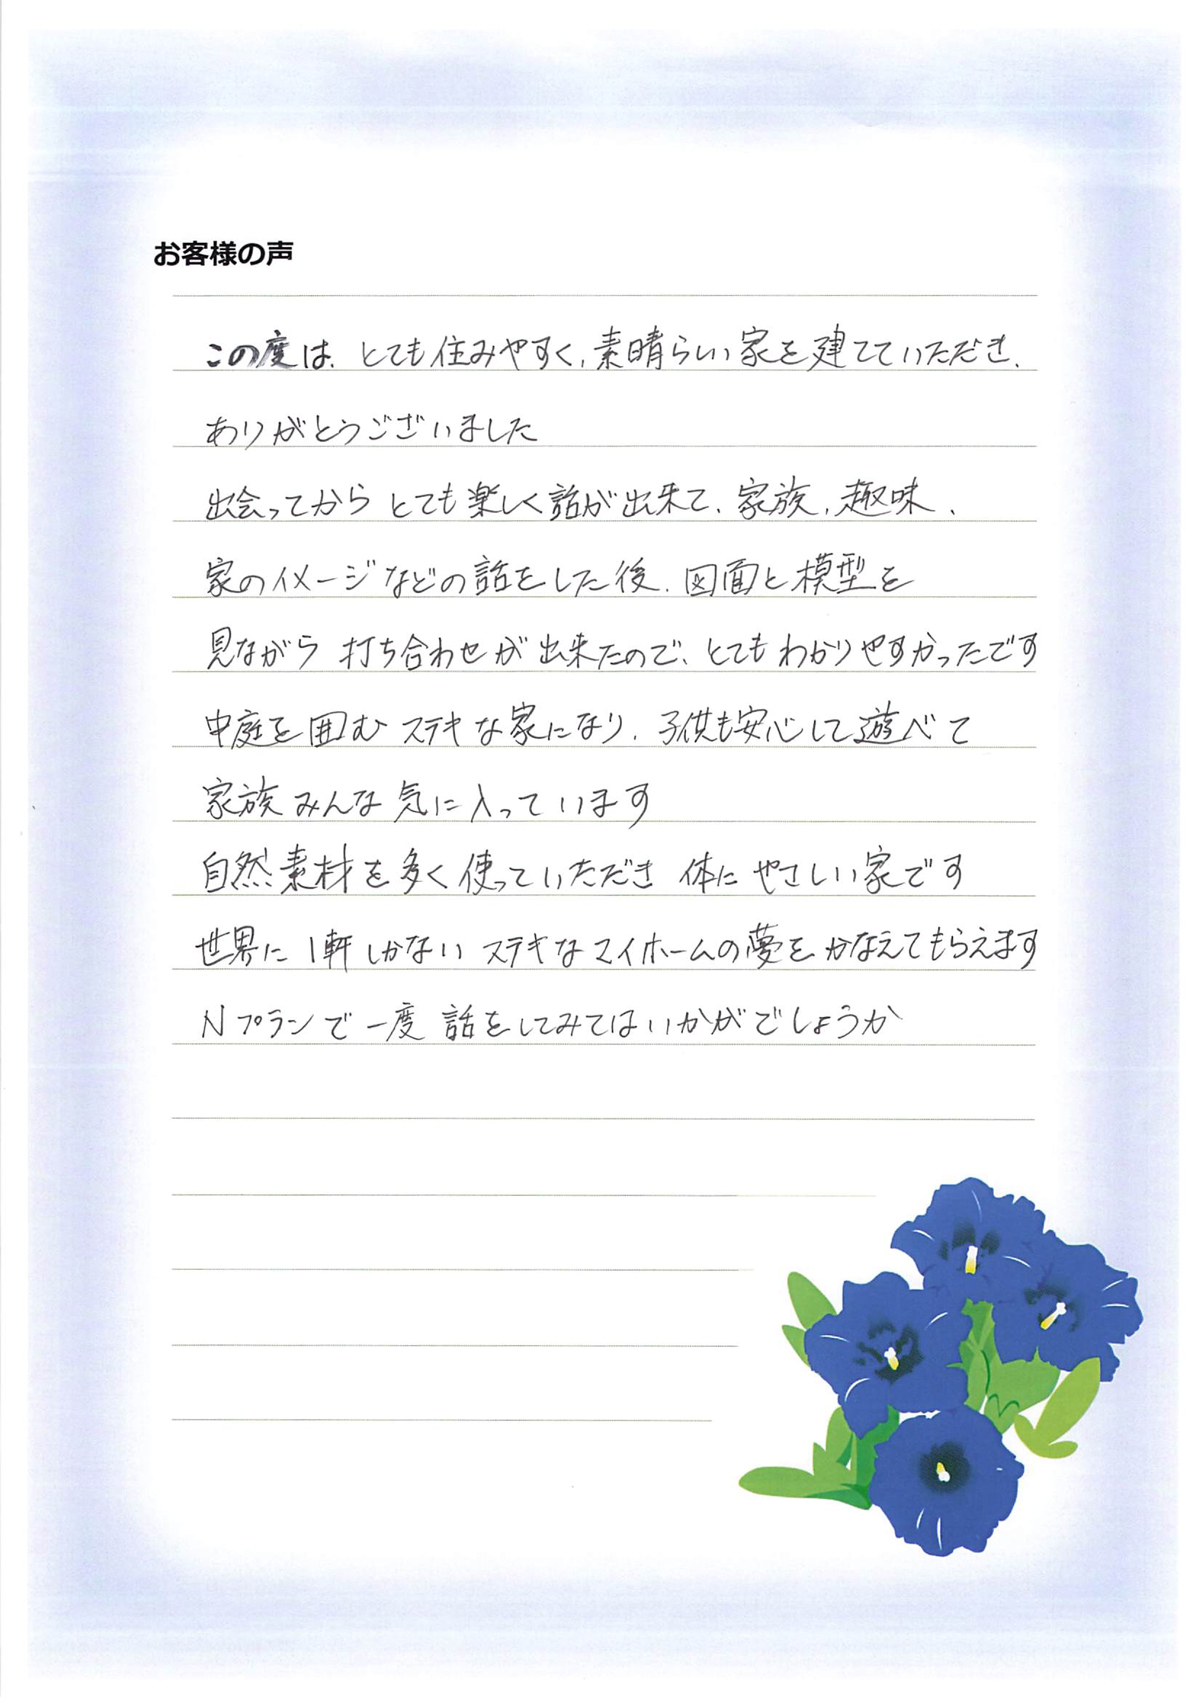 お客様の声
この度は、とても住みやすく、素晴らしい家を建てていただき、
ありがとうございました
出会ってから とても楽しく話が出来て、家族、趣味、
家のイメージなどの話をした後、図面と模型を
見ながら 打ち合わせが出来たので、とてもわかりやすかったです
中庭を囲む ステキな家になり、子供も安心して遊べて
家族みんな気に入っています
自然素材を多く使っていただき 体に やさしい家です
世界に 1軒しかない ステキなマイホームの夢を かなえてもらえます
Nプランで一度 話をしてみてはいかがでしょうか